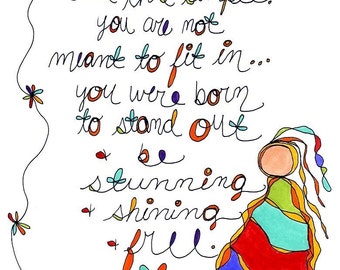 you are not
meant to fit in...
you were born
to stand out
be
stunning
+ shining
+ free.